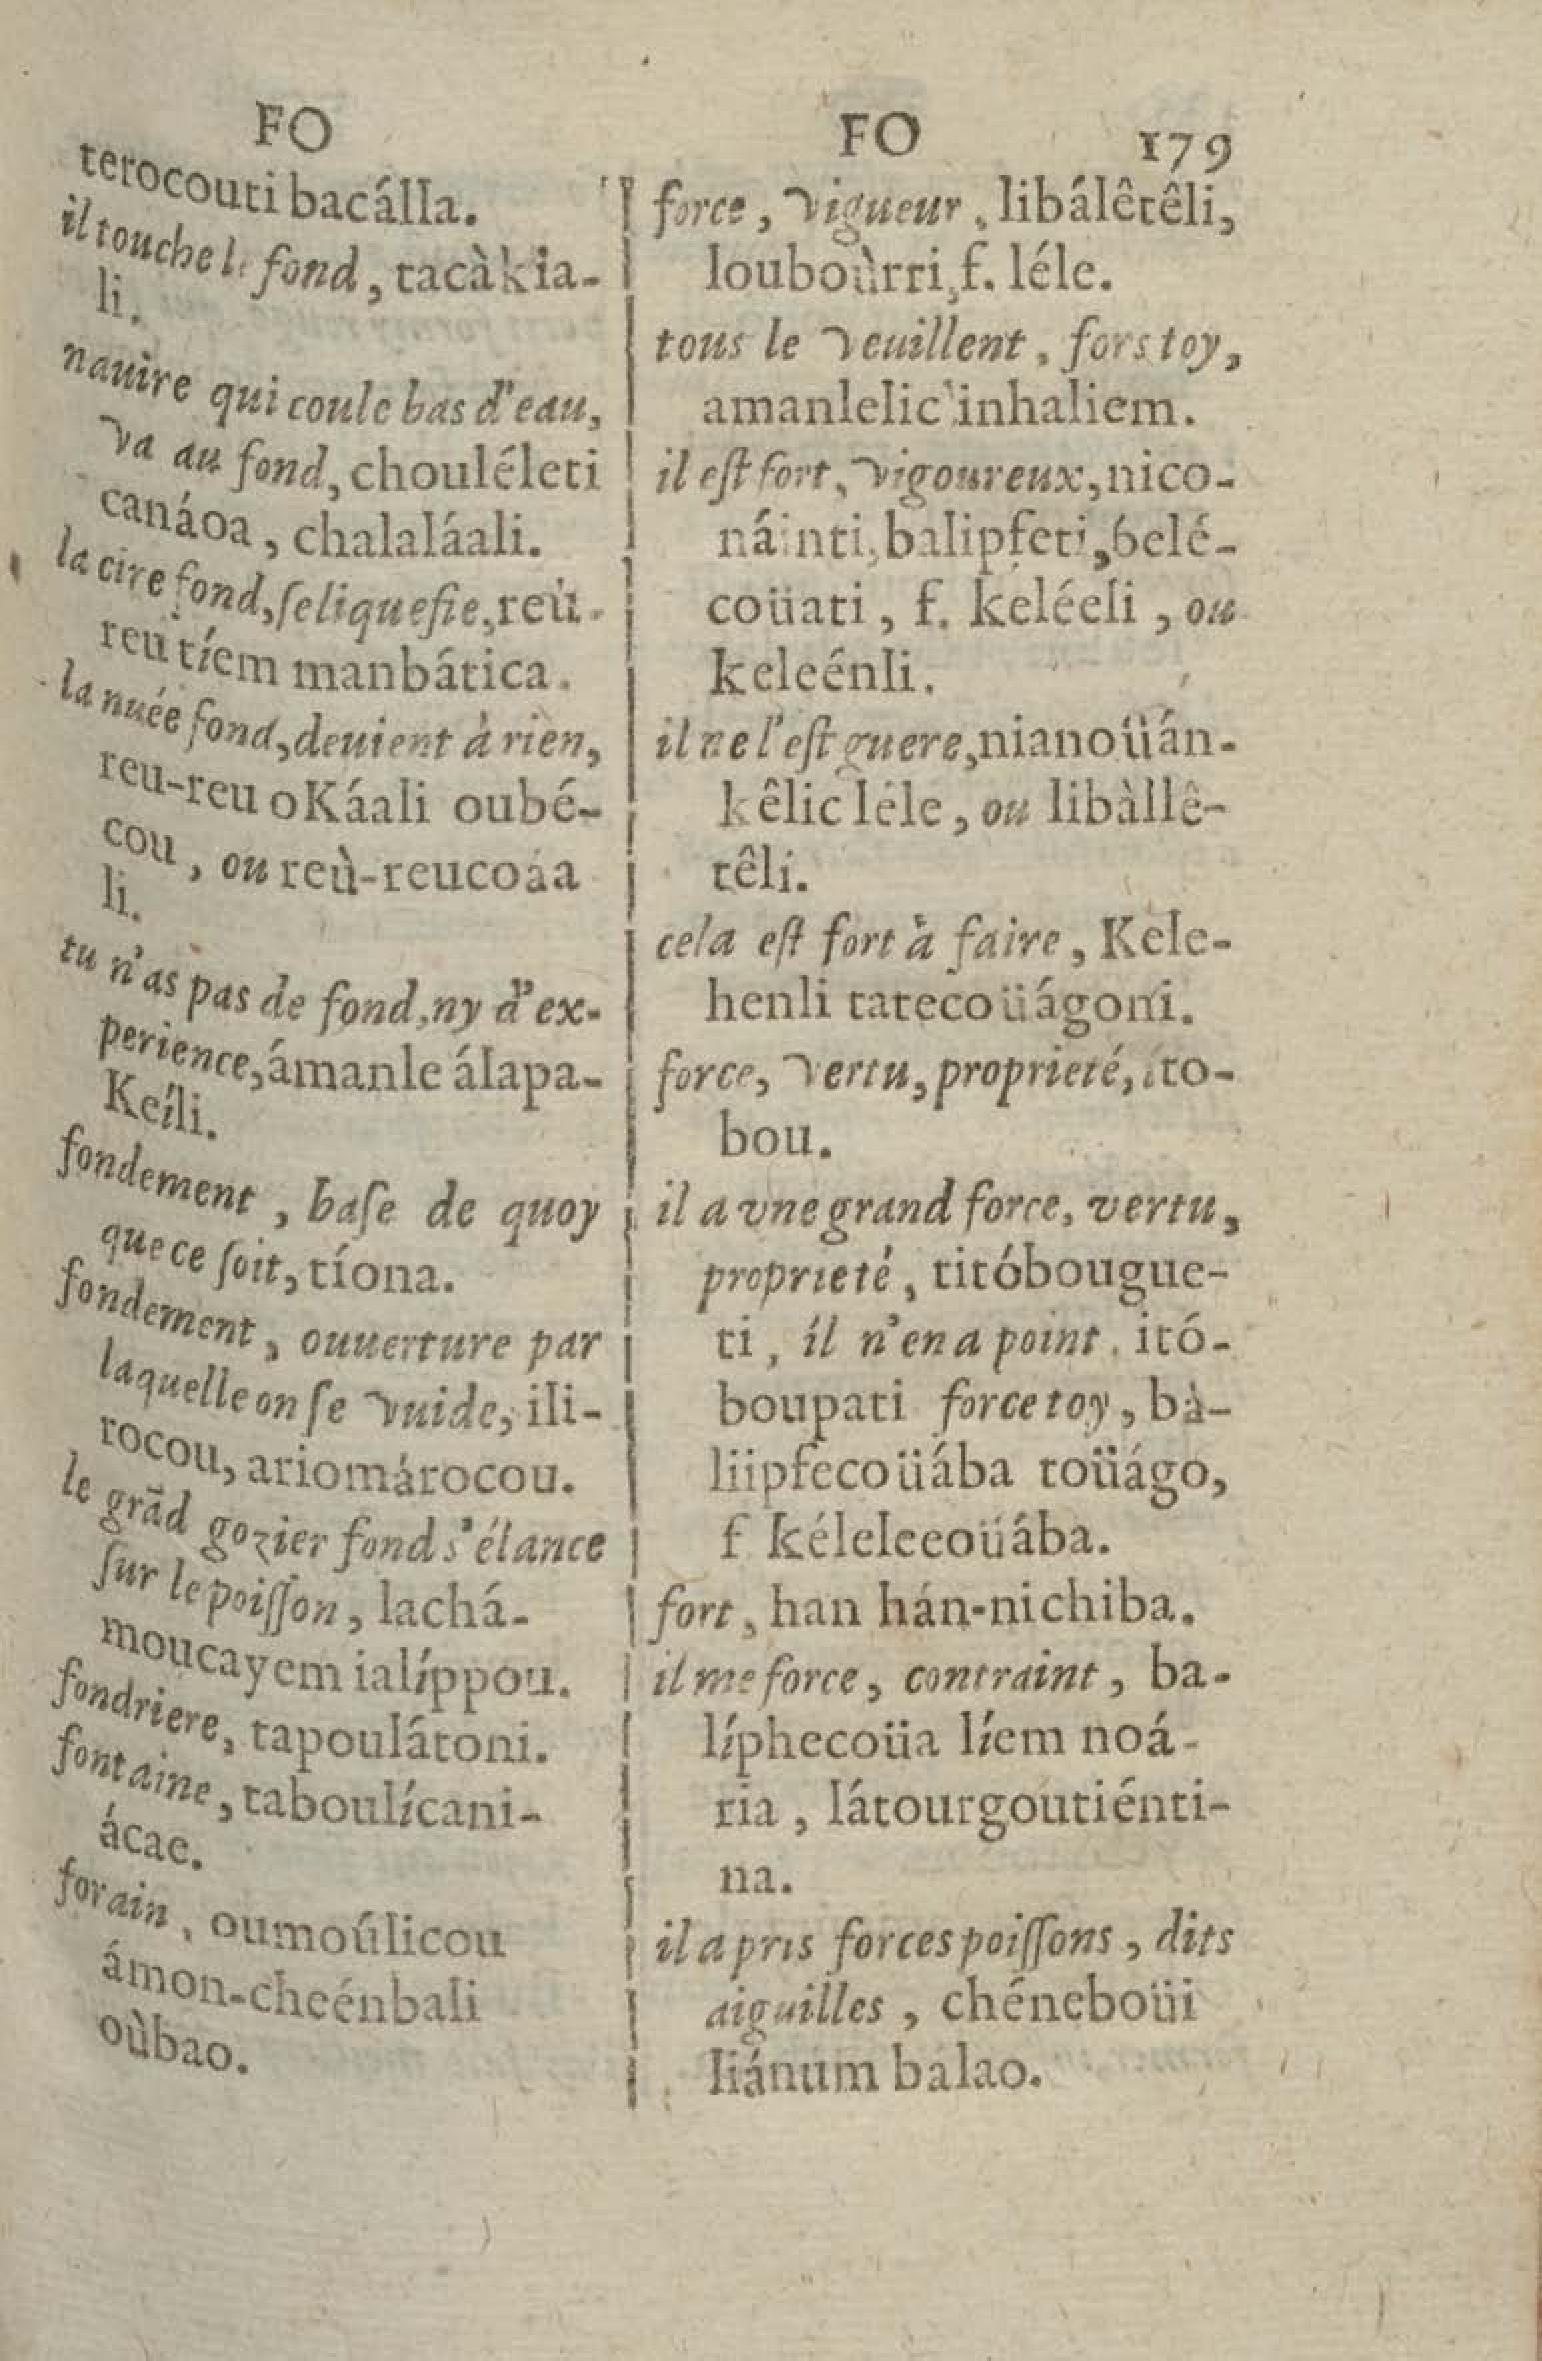 FO
terocouti bacálla.
il touche le fond, tacàkia-
li.
nauire qui coule bas d'eau,
va au fond, chouléleti
canáoa, chalaláali.
la cire fond, ſe liquefie, reù-
reu tíem manbática.
la nuée fond, deuient à rien,
reu-reu oKáali oubé-
cou, ou reù-reucoáa
li.
tu n'as pas de fond, ny d'ex-
perience, ámanle álapa-
Keíli.
fondement, baſe de quoy
que ce ſoit, tíona.
fondement, ouuerture par
laquelle on ſe vuide, ili-
rocou, ariomárocou.
le grãd gozier fond s'élance
ſur le poiſſon, lachá-
moucayem ialíppou.
fondriere, tapoulátoni.
fontaine, taboulícani-
ácae.
forain, oumoúlicou
ámon-cheénbali
oùbao.
FO 179
force, vigueur, libálêtêli,
louboùrri, f. léle.
tous le veuillent, fors toy,
amanlelic inhaliem.
il eſt fort, vigoureux, nico-
náinti, balipfeti, belé-
coüati, f. keléeli, ou
keleénli.
il ne l'eſt guere, nianoüán-
kêlic léle, ou libàllê-
têli.
cela eſt fort à faire, Kele-
henli tatecoüágoni.
force, vertu, proprieté, ito-
bou.
il a vne grand force, vertu,
proprieté, titóbougue-
ti, il n'en a point, itó-
boupati force toy, bà-
liipfecoüába toüágo,
f kéleleeoüába.
fort, han hán-nichiba.
il me force, contraint, ba-
líphecoüa líem noá-
ria, látourgoutiénti-
na.
il a pris forces poiſſons, dits
aiguilles, chéneboüi
liánum balao.